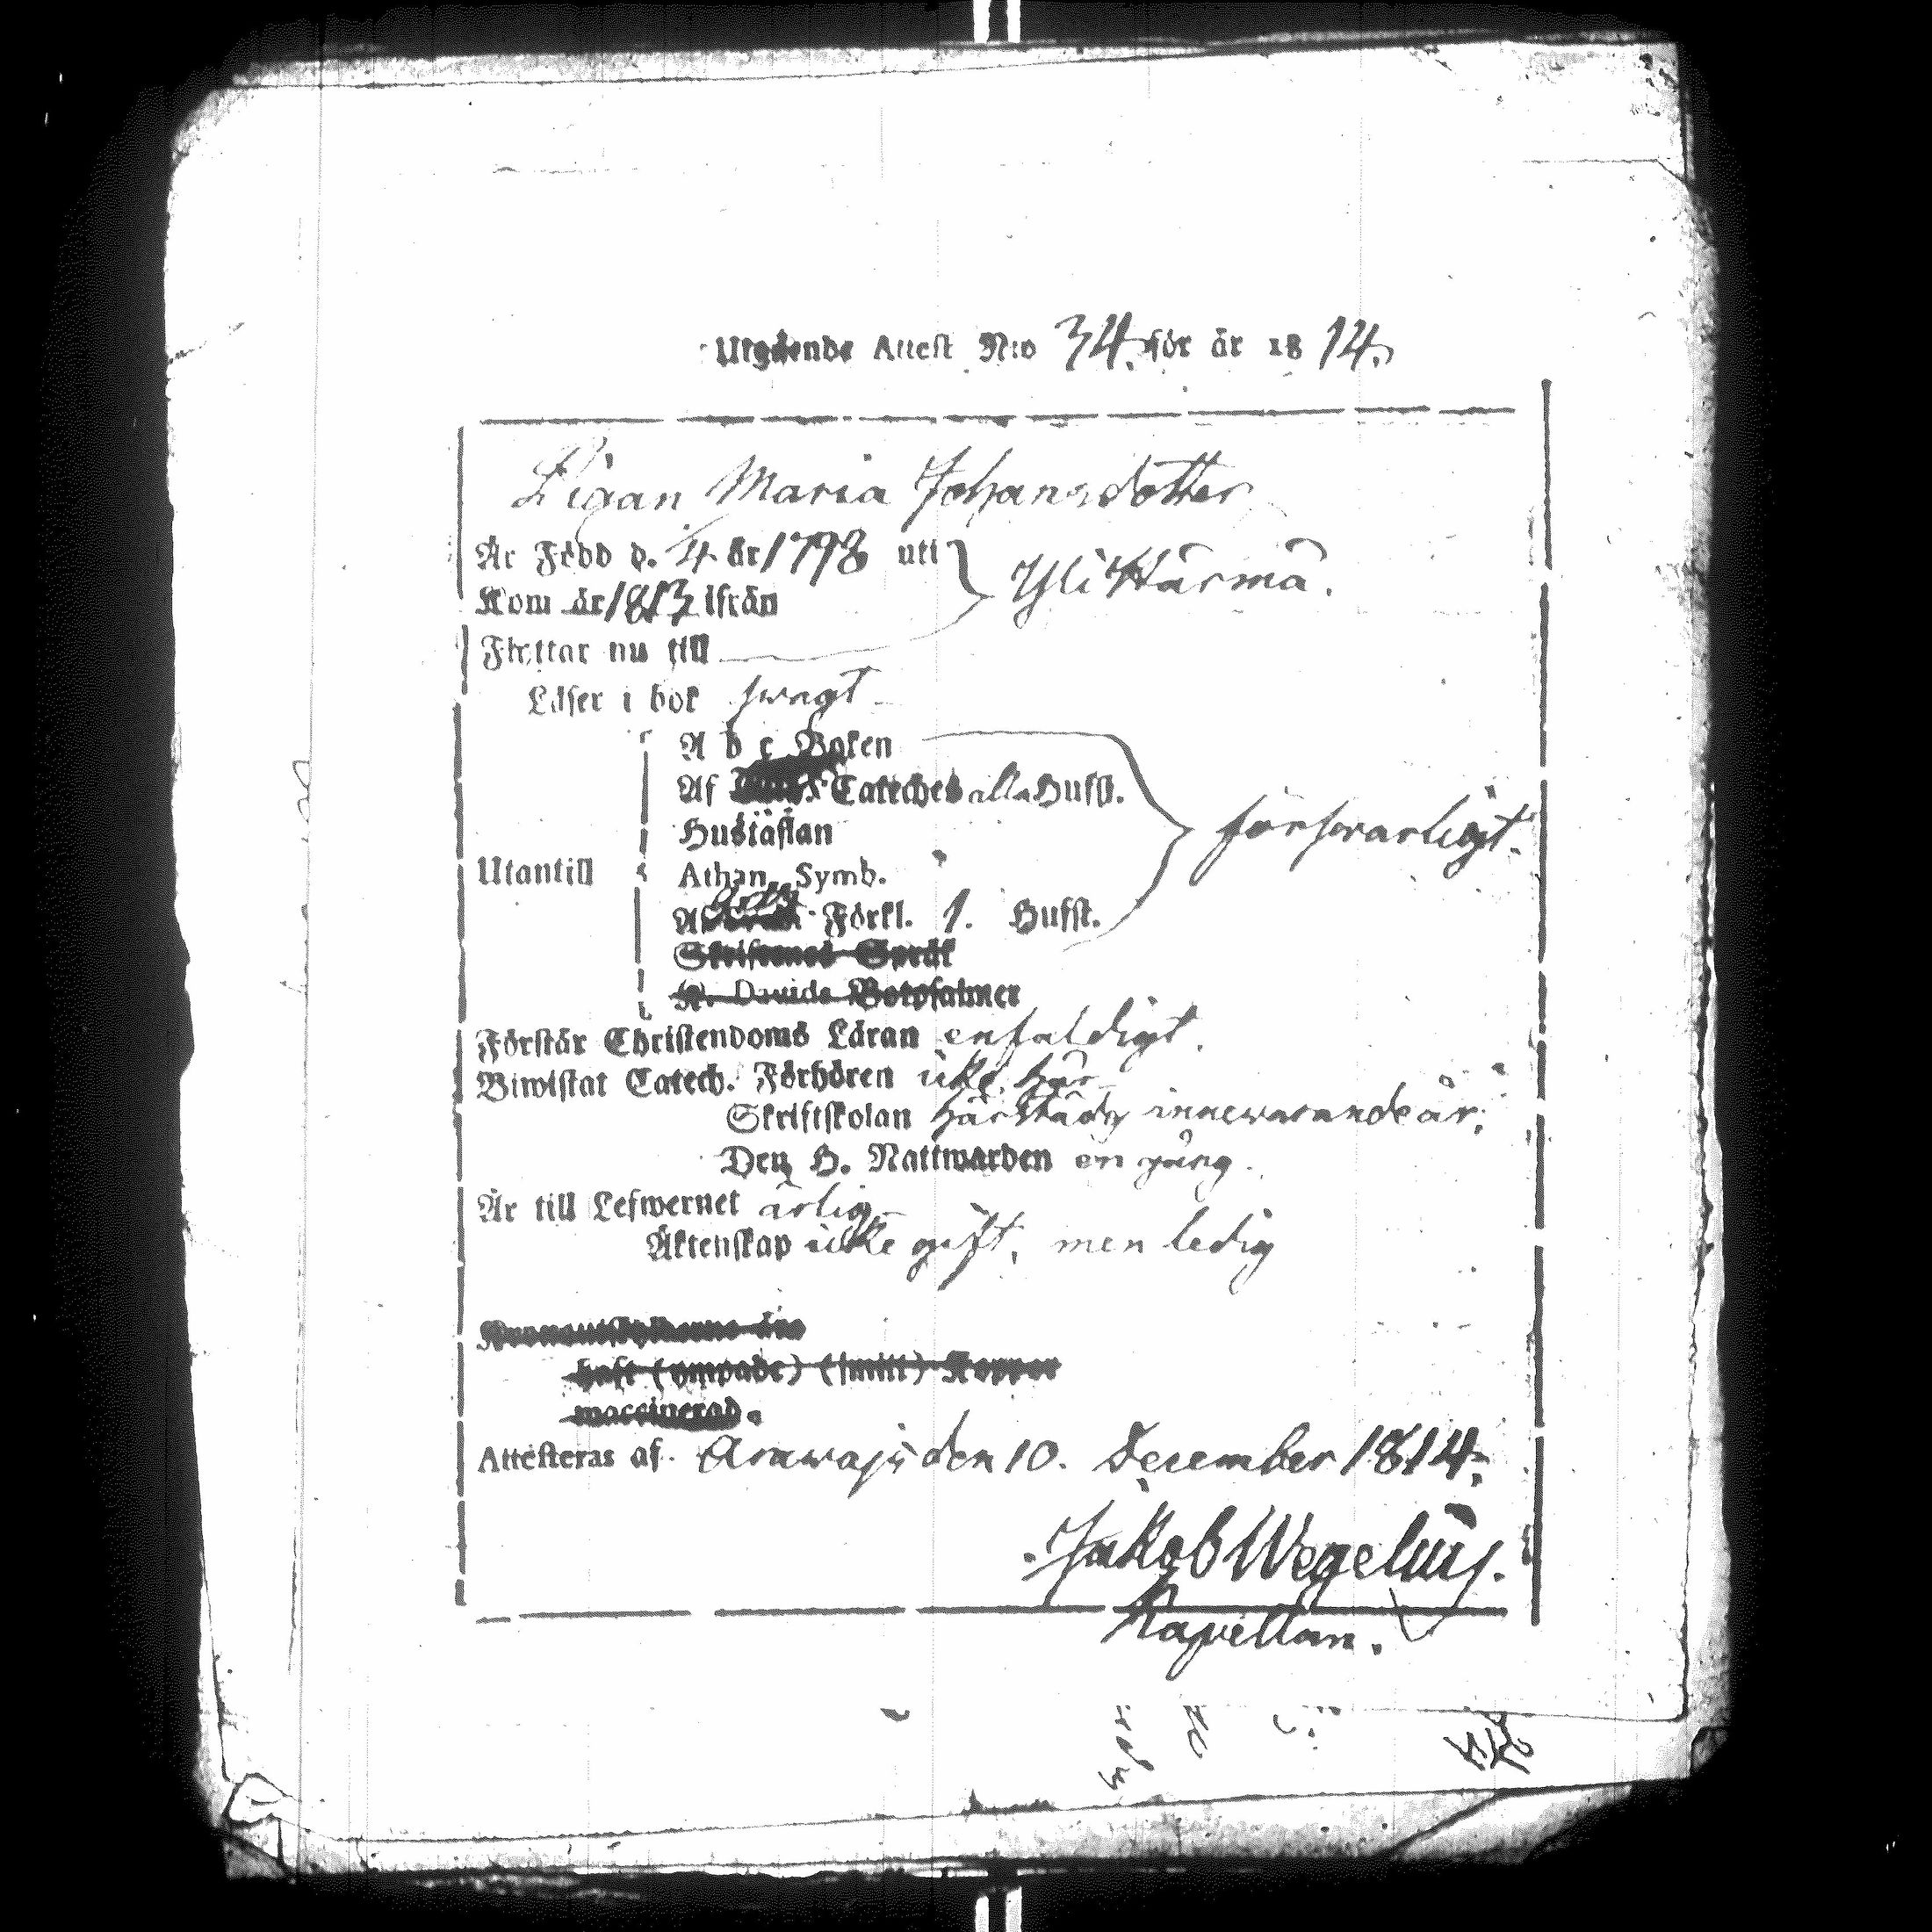 Utgående Attest N:o 34. för år 1814.
Pigan Maria Johansdotter
Är Född d. 4 år 1798 uti
Yli Härmä.
Kom år 1813 ifrån
Flyttar nu till
Läser i bok swagt
A b c Boken
Af Cateches alla Hufst.
Hustaflan
förswarligt.
Utantill
Athan. Symb.
Af Förkl. 1. Hufst.
Skriftenes Språk
K. Davids Botpsalmer
Förstår Christendoms Läran enfaldigt.
Biwistat Catech. Förhören icke här
Skriftskolan härstädes innewarande år.
Den H. Nattwarden en gång.
Är till Lefwernet ärlig
Äktenskap icke gift, men ledig
haft (ympade) (smitt) Koppor
vaccinerad.
Attesteras af. Arawajs den 10. December 1814.
Jakob Wegelius.
Kapellan.